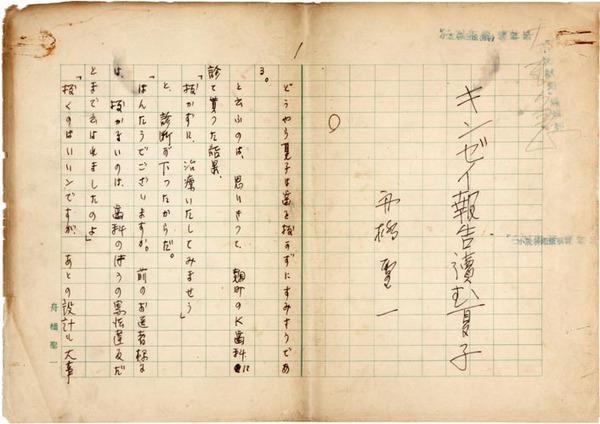 キンゼイ報告讀む夏子
舟橋聖一
どうやら夏子は歯を抜かずにすみさうであ
る。
と云ふのは、思ひきつて、麹町のK歯科に
診て貰つた結果、
「抜かずに、治療いたしてみませう」
と、診断が下つたからだ。
「ほんたうでございますか。前のお医者様は
は、抜かないのは、歯科のはうの憲法違反だ
とまで云はれましたのよ」
「抜くのはいいンですが、あとの設計も大事
舟橋聖一